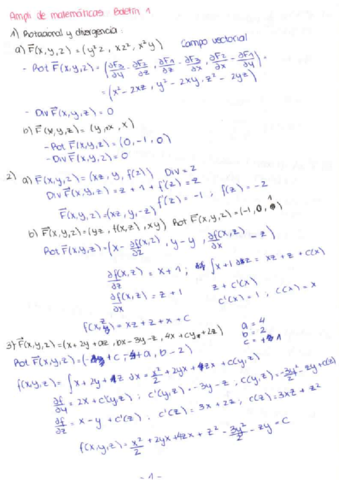 Ampli de matemáticas: Boletín 1
1) Rotacional y divergencia:
a) F⃗(x,y,z) = (y²z, xz², x²y) Campo vectorial
- Rot F⃗(x,y,z) = (∂F₃/∂y - ∂F₂/∂z, ∂F₁/∂z - ∂F₃/∂x, ∂F₂/∂x - ∂F₁/∂y) =
= (x² - 2xz, y² - 2xy, z² - 2yz)
- Div F⃗(x,y,z) = 0
b) F⃗(x,y,z) = (y, x, x)
- Rot F⃗(x,y,z) = (0, -1, 0)
- Div F⃗(x,y,z) = 0
2) a) F⃗(x,y,z) = (xz, y, f(z)) Div = 2
Div F⃗(x,y,z) = z + 1 + f'(z) = 2
F⃗(x,y,z) = (xz, y, -z) f'(z) = -1; f(z) = -z
b) F⃗(x,y,z) = (yz, f(x,z), xy) Rot F⃗(x,y,z) = (-1, 0, 1)
Rot F⃗(x,y,z) = (x - ∂f(x,z)/∂z, y - y, ∂f(x,z)/∂x - z)
∂f(x,z)/∂z = x + 1; ∫x + 1 dz = xz + z + c(x)
∂f(x,z)/∂x = z + 1 z + c'(x)
c'(x) = 1, c(x) = x
f(x,z) = xz + z + x + C
3) F⃗(x,y,z) = (x + 2y + az, bx - 3y - z, 4x + cy + 2z) a = 4
b = 2
Rot F⃗(x,y,z) = (c + 1, a, b - 2)
f(x,y,z) = ∫x + 2y + 4z dx = x²/2 + 2yx + 4zx + c(y,z)
∂f/∂y = 2x + c'(y,z); c'(y,z) = -3y - z, c(y,z) = -3y²/2 - zy + c(z)
∂f/∂z = x - y + c'(z); c'(z) = 3x + 2z; c(z) = 3xz + z²
f(x,y,z) = x²/2 + 2yx + 4zx + z² - 3y²/2 - zy + C
- 1 -